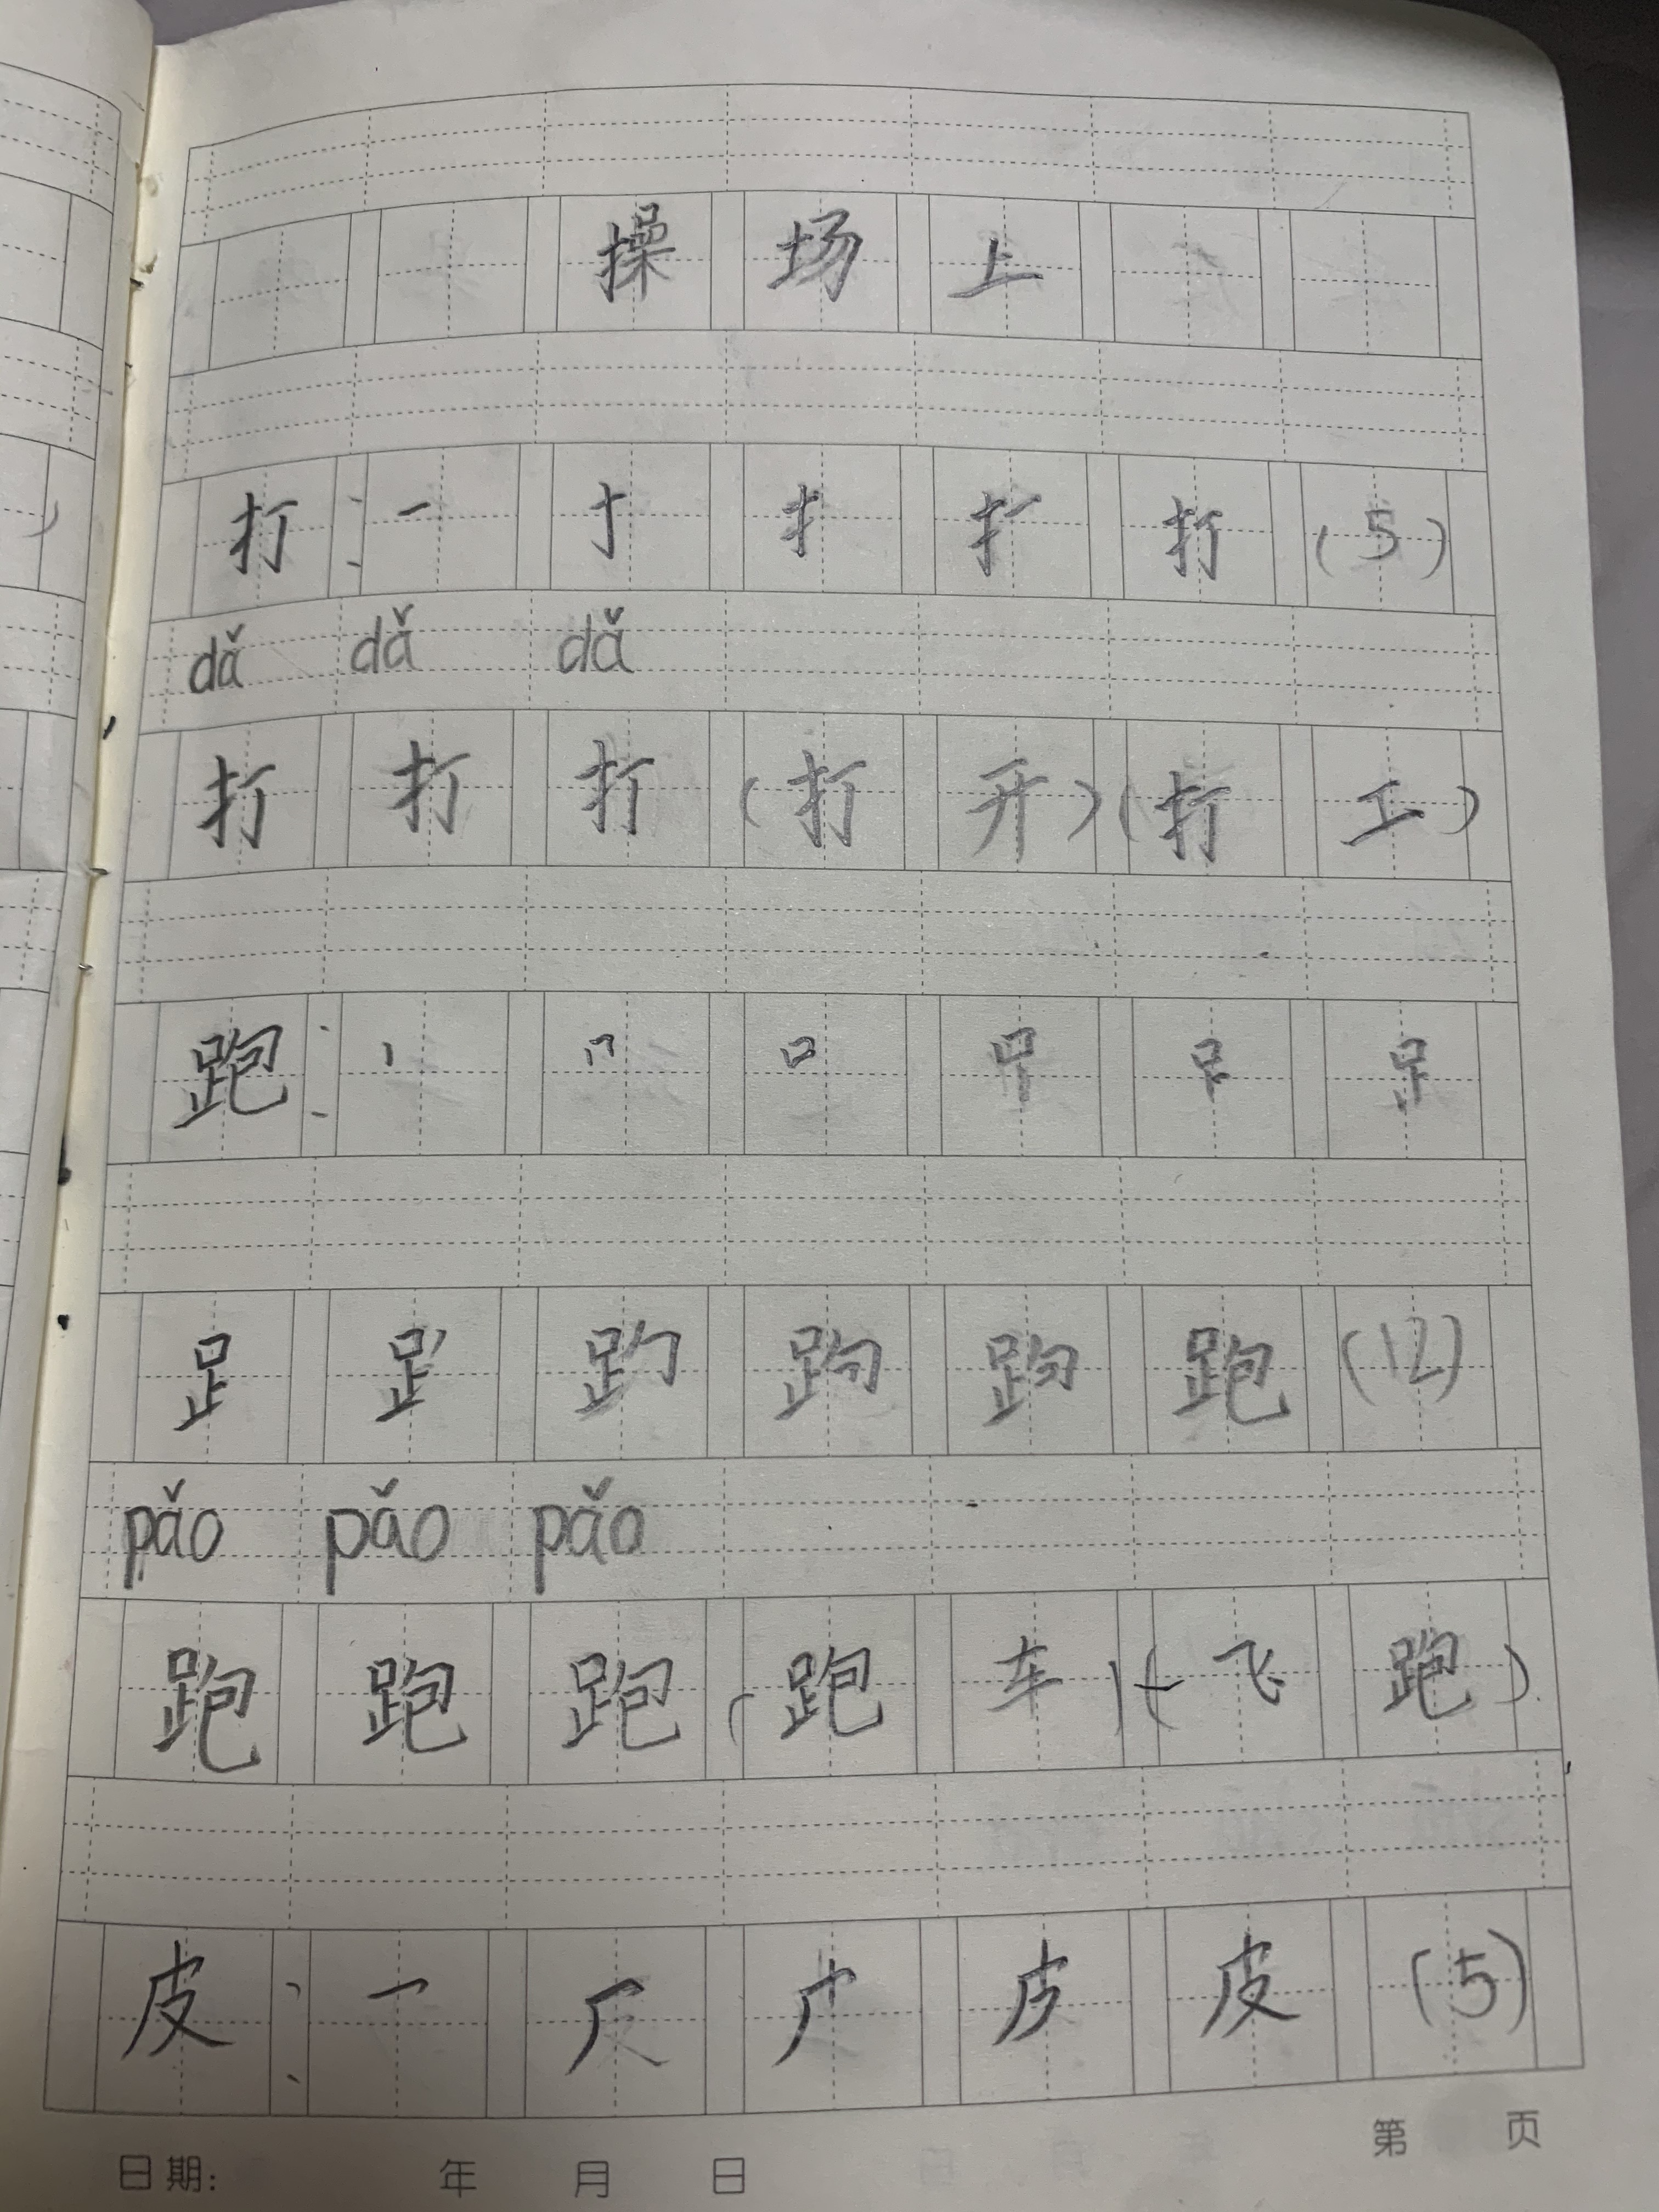 操场上
打: 一 十 扌 扌一 打 (5)
dǎ dǎ dǎ
打 打 打 (打开)(打工)
跑: 丨 冂 口
𧾷 跑 (12)
pǎo pǎo pǎo
跑 跑 跑 (跑车)(飞跑)
皮: 一 厂 皮 (5)
日期: 年 月 日
第 页